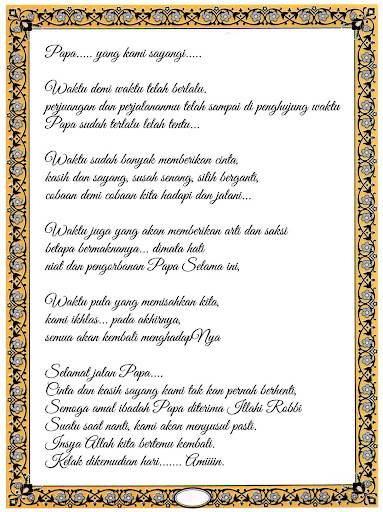 Papa..... yang kami sayangi.....
Waktu demi waktu telah berlalu.
perjuangan dan perjalananmu telah sampai di penghujung waktu
Papa sudah terlalu lelah tentu...
Waktu sudah banyak memberikan cinta,
kasih dan sayang, susah senang, silih berganti,
cobaan demi cobaan kita hadapi dan jalani...
Waktu juga yang akan memberikan arti dan saksi
betapa bermaknanya... dimata hati
niat dan pengorbanan Papa Selama ini,
Waktu pula yang memisahkan kita,
kami ikhlas... pada akhirnya,
semua akan kembali menghadapNya
Selamat jalan Papa....
Cinta dan kasih sayang kami tak kan pernah berhenti,
Semoga amal ibadah Papa diterima Illahi Robbi
Suatu saat nanti, kami akan menyusul pasti.
Insya Allah kita bertemu kembali.
Kelak dikemudian hari....... Amiiiin.